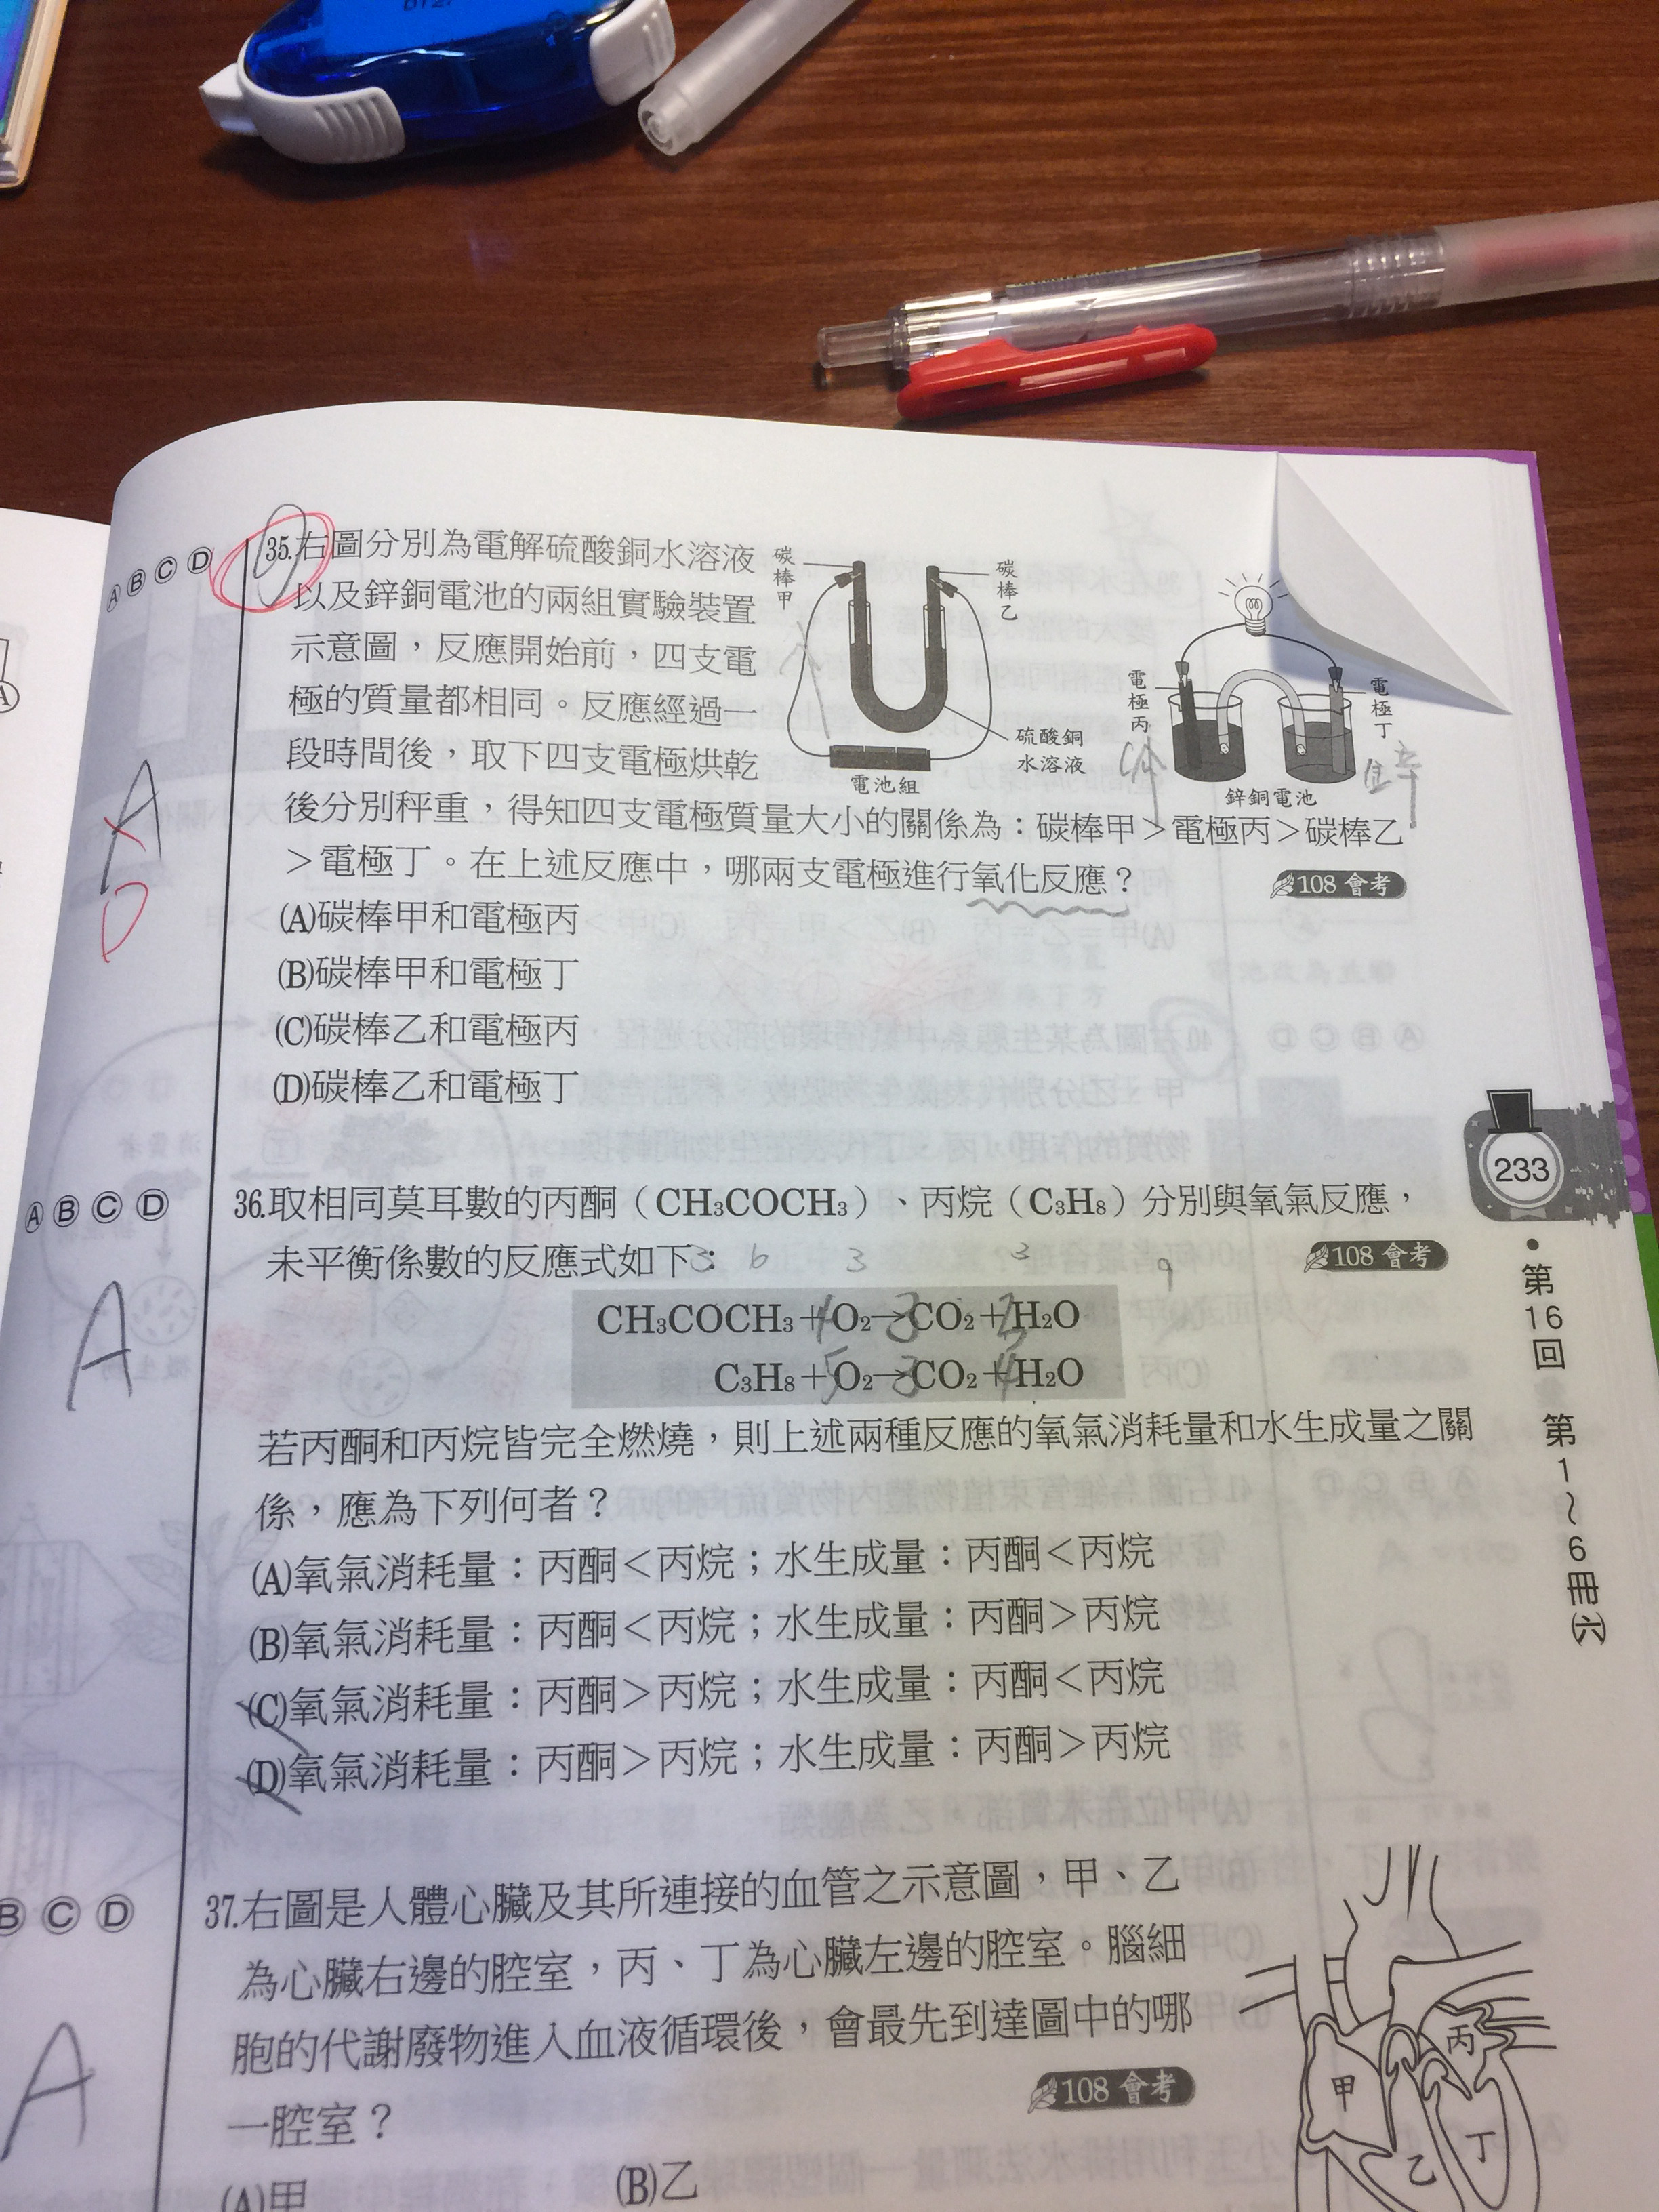 Ⓐ Ⓑ Ⓒ Ⓓ
35.右圖分別為電解硫酸銅水溶液
以及鋅銅電池的兩組實驗裝置
示意圖，反應開始前，四支電
極的質量都相同。反應經過一
段時間後，取下四支電極烘乾
後分別秤重，得知四支電極質量大小的關係為：碳棒甲＞電極丙＞碳棒乙
＞電極丁。在上述反應中，哪兩支電極進行氧化反應？
108 會考
碳棒甲
碳棒乙
硫酸銅
水溶液
電池組
電極丙
電極丁
鋅銅電池
(A)碳棒甲和電極丙
(B)碳棒甲和電極丁
(C)碳棒乙和電極丙
(D)碳棒乙和電極丁
A
D
Ⓐ Ⓑ Ⓒ Ⓓ
36.取相同莫耳數的丙酮（CH₃COCH₃）、丙烷（C₃H₈）分別與氧氣反應，
未平衡係數的反應式如下：
108 會考
3 6 3 3 9
CH₃COCH₃+4O₂→3CO₂+3H₂O
C₃H₈+5O₂→3CO₂+4H₂O
A
若丙酮和丙烷皆完全燃燒，則上述兩種反應的氧氣消耗量和水生成量之關
係，應為下列何者？
(A)氧氣消耗量：丙酮＜丙烷；水生成量：丙酮＜丙烷
(B)氧氣消耗量：丙酮＜丙烷；水生成量：丙酮＞丙烷
(C)氧氣消耗量：丙酮＞丙烷；水生成量：丙酮＜丙烷
(D)氧氣消耗量：丙酮＞丙烷；水生成量：丙酮＞丙烷
Ⓑ Ⓒ Ⓓ
37.右圖是人體心臟及其所連接的血管之示意圖，甲、乙
為心臟右邊的腔室，丙、丁為心臟左邊的腔室。腦細
胞的代謝廢物進入血液循環後，會最先到達圖中的哪
一腔室？
108 會考
A
(A)甲
(B)乙
丙
甲
乙
丁
233
第16回 第1～6冊㈥